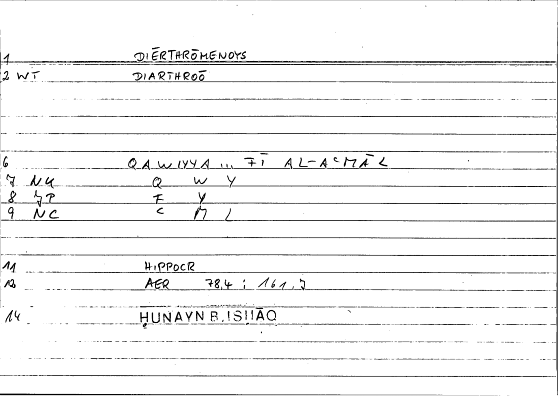 1 DIĒRTHRŌMENOYS
2 WT DIARTHROŌ
6 QAWIYYA ... FĪ AL-AᶜMĀL
7 NU Q W Y
8 JP F Y
9 NC ᶜ M L
11 HIPPOCR
AER 78,4 ; 161,5
14 ḤUNAYN B. ISḤĀQ